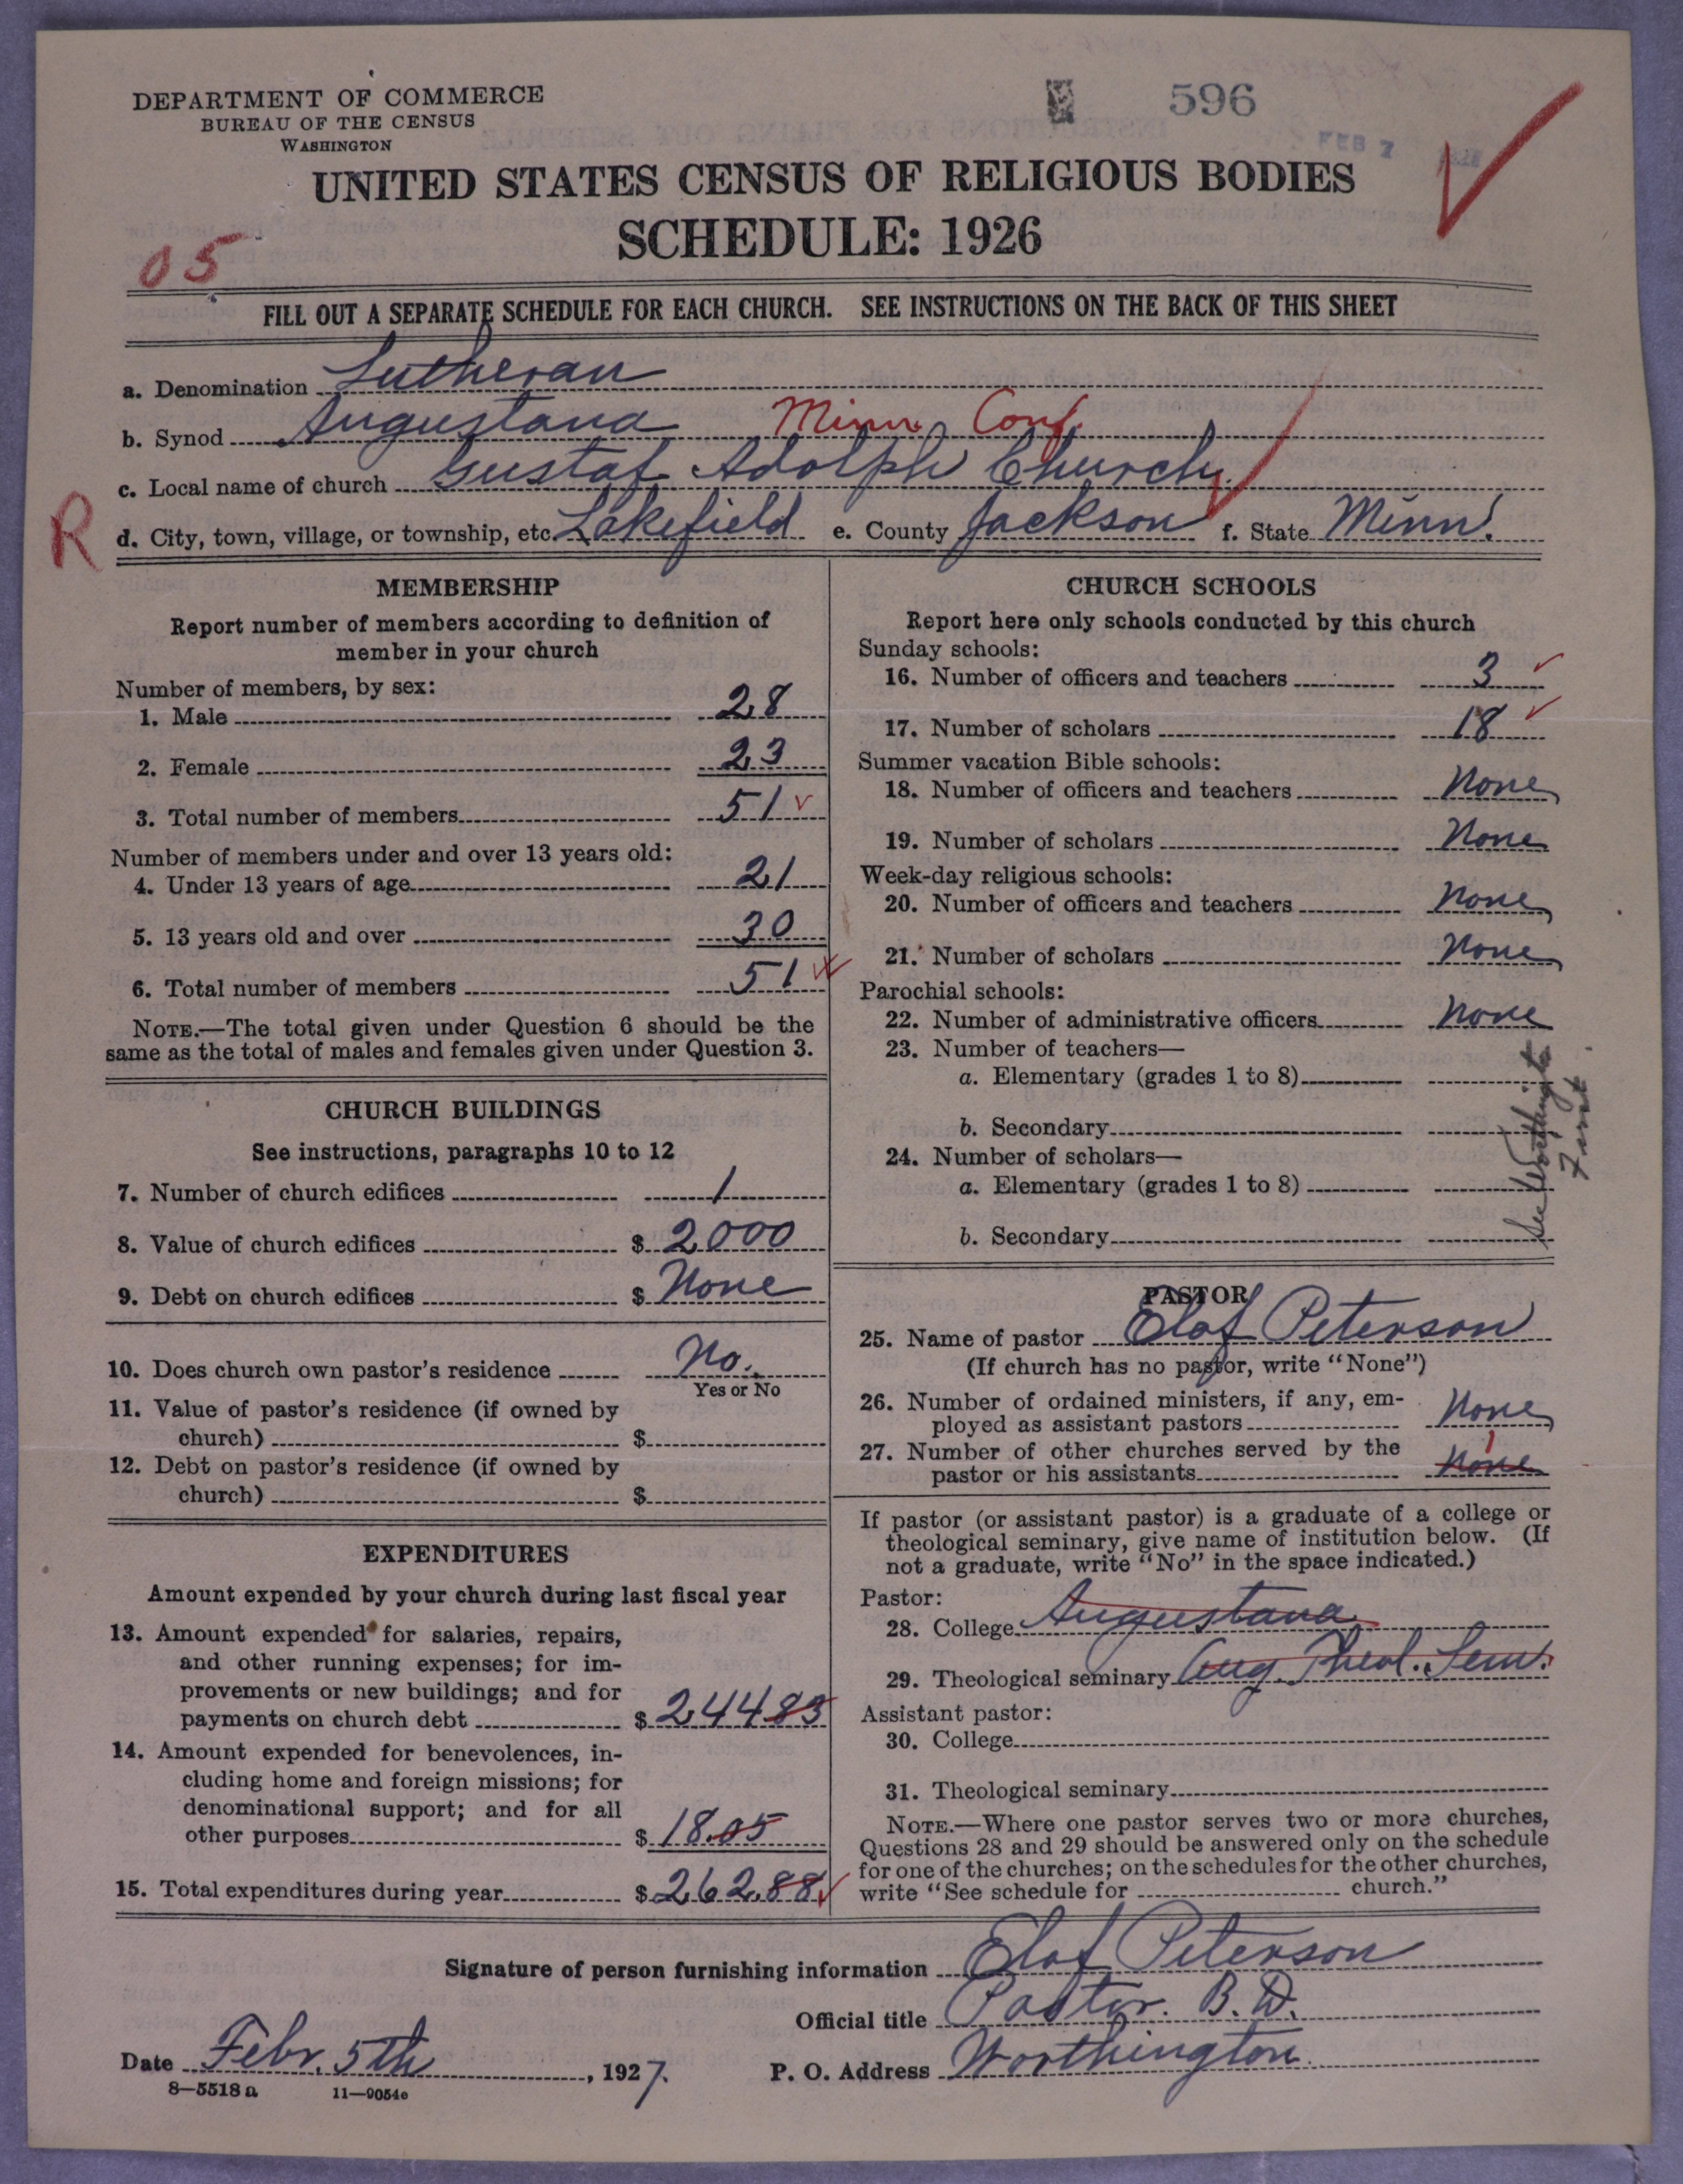 DEPARTMENT OF COMMERCE
BUREAU OF THE CENSUS
WASHINGTON
596
FEB 7
UNITED STATES CENSUS OF RELIGIOUS BODIES
SCHEDULE: 1926
05
FILL OUT A SEPARATE SCHEDULE FOR EACH CHURCH. SEE INSTRUCTIONS ON THE BACK OF THIS SHEET
a. Denomination Lutheran
b. Synod Augustana Minn. Conf.
c. Local name of church Gustaf Adolph Church
R
d. City, town, village, or township, etc. Lakefield e. County Jackson f. State Minn.
MEMBERSHIP
Report number of members according to definition of
member in your church
Number of members, by sex:
1. Male 28
2. Female 23
3. Total number of members 51
Number of members under and over 13 years old:
4. Under 13 years of age 21
5. 13 years old and over 30
6. Total number of members 51
NOTE.—The total given under Question 6 should be the
same as the total of males and females given under Question 3.
CHURCH BUILDINGS
See instructions, paragraphs 10 to 12
7. Number of church edifices 1
8. Value of church edifices $ 2000
9. Debt on church edifices $ None
10. Does church own pastor's residence No.
Yes or No
11. Value of pastor's residence (if owned by
church) $
12. Debt on pastor's residence (if owned by
church) $
EXPENDITURES
Amount expended by your church during last fiscal year
13. Amount expended for salaries, repairs,
and other running expenses; for im-
provements or new buildings; and for
payments on church debt $ 24483
14. Amount expended for benevolences, in-
cluding home and foreign missions; for
denominational support; and for all
other purposes $ 18.05
15. Total expenditures during year $ 262.88
CHURCH SCHOOLS
Report here only schools conducted by this church
Sunday schools:
16. Number of officers and teachers 3
17. Number of scholars 18
Summer vacation Bible schools:
18. Number of officers and teachers None
19. Number of scholars None
Week-day religious schools:
20. Number of officers and teachers None
21. Number of scholars None
Parochial schools:
22. Number of administrative officers None
23. Number of teachers—
a. Elementary (grades 1 to 8)
b. Secondary
24. Number of scholars—
a. Elementary (grades 1 to 8)
b. Secondary
See Worthington
First
PASTOR
25. Name of pastor Elof Peterson
(If church has no pastor, write "None")
26. Number of ordained ministers, if any, em-
ployed as assistant pastors None
27. Number of other churches served by the
1
pastor or his assistants None
If pastor (or assistant pastor) is a graduate of a college or
theological seminary, give name of institution below. (If
not a graduate, write "No" in the space indicated.)
Pastor:
28. College Augustana
29. Theological seminary Aug. Theol. Sem.
Assistant pastor:
30. College
31. Theological seminary
NOTE.—Where one pastor serves two or more churches,
Questions 28 and 29 should be answered only on the schedule
for one of the churches; on the schedules for the other churches,
write "See schedule for church."
Signature of person furnishing information Elof Peterson
Official title Pastor. B.D.
Date Febr. 5th, 1927. P. O. Address Worthington
8—5518a 11—9054e